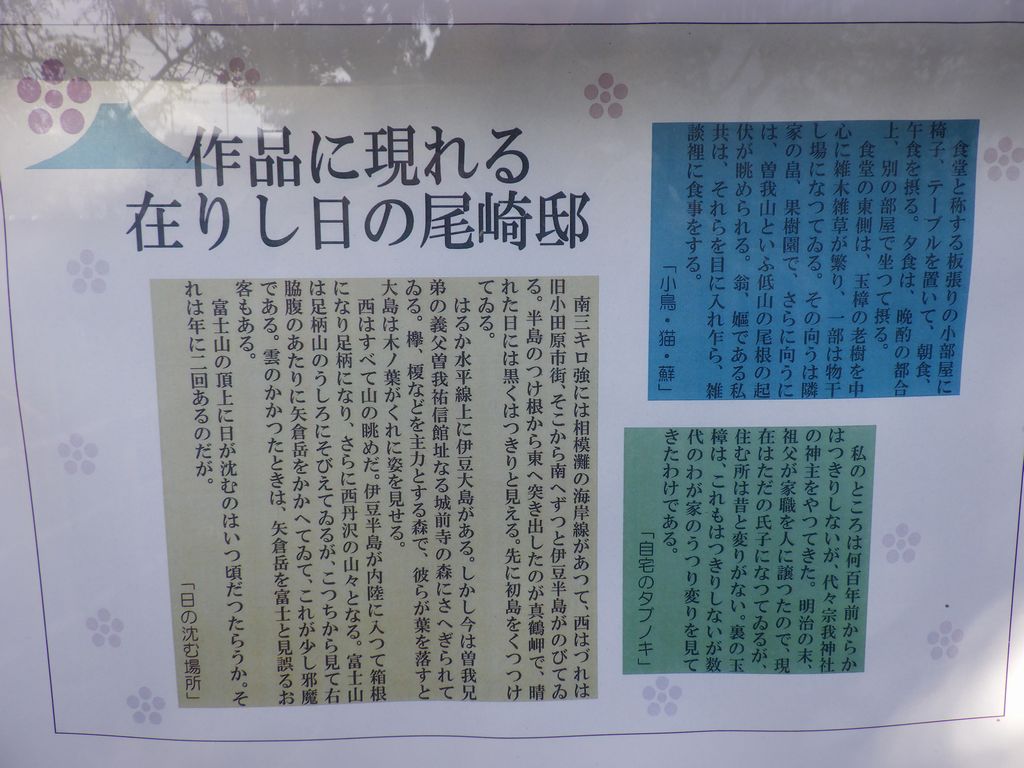 作品に現れる
在りし日の尾崎邸
食堂と称する板張りの小部屋に
椅子、テーブルを置いて、朝食、
午食を摂る。夕食は、晩酌の都合
上、別の部屋で坐つて摂る。
食堂の東側は、玉樟の老樹を中
心に雑木雑草が繁り、一部は物干
し場になつてゐる。その向うは隣
家の畠、果樹園で、さらに向うに
は、曽我山といふ低山の尾根の起
伏が眺められる。翁、嫗である私
共は、それらを目に入れ乍ら、雑
談裡に食事をする。
「小鳥・猫・蘚」
私のところは何百年前からか
はつきりしないが、代々宗我神社
の神主をやつてきた。明治の末、
祖父が家職を人に譲つたので、現
在はただの氏子になつてゐるが、
住む所は昔と変りがない。裏の玉
樟は、これもはつきりしないが数
代のわが家のうつり変りを見て
きたわけである。
「自宅のタブノキ」
南三キロ強には相模灘の海岸線があつて、西はづれは
旧小田原市街、そこから南へずつと伊豆半島がのびてゐ
る。半島のつけ根から東へ突き出したのが真鶴岬で、晴
れた日には黒くはつきりと見える。先に初島をくつつけ
てゐる。
はるか水平線上に伊豆大島がある。しかし今は曽我兄
弟の義父曽我祐信館址なる城前寺の森にさへぎられて
ゐる。欅、榎などを主力とする森で、彼らが葉を落すと
大島は木ノ葉がくれに姿を見せる。
西はすべて山の眺めだ。伊豆半島が内陸に入つて箱根
になり足柄になり、さらに西丹沢の山々となる。富士山
は足柄山のうしろにそびえてゐるが、こつちから見て右
脇腹のあたりに矢倉岳をかかへてゐて、これが少し邪魔
である。雲のかかつたときは、矢倉岳を富士と見誤るお
客もある。
富士山の頂上に日が沈むのはいつ頃だつたらうか。そ
れは年に二回あるのだが。
「日の沈む場所」